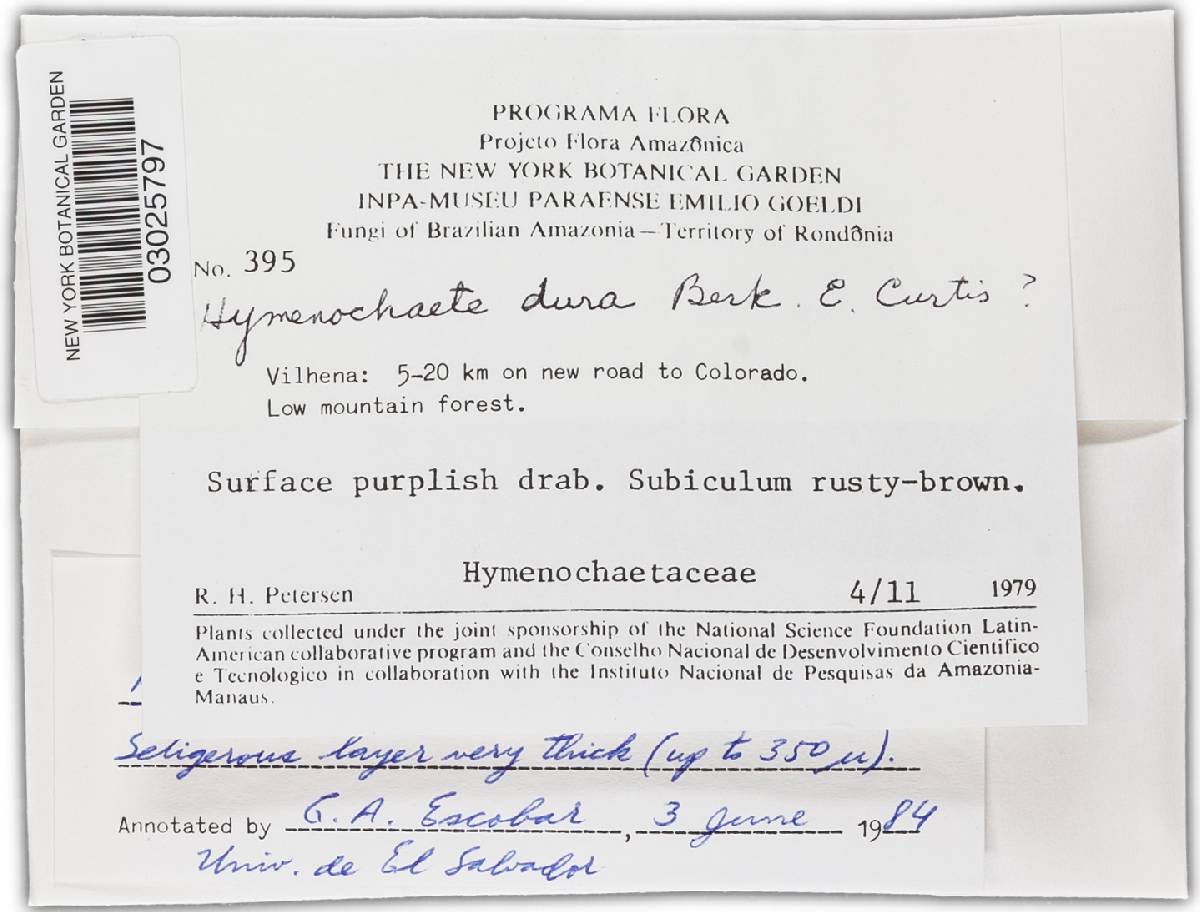 NEW YORK BOTANICAL GARDEN
03025797
PROGRAMA FLORA
Projeto Flora Amazônica
THE NEW YORK BOTANICAL GARDEN
INPA-MUSEU PARAENSE EMILIO GOELDI
Fungi of Brazilian Amazonia—Territory of Rondônia
No. 395
Hymenochaete dura Berk. E. Curtis ?
Vilhena: 5-20 km on new road to Colorado.
Low mountain forest.
Surface purplish drab. Subiculum rusty-brown.
Hymenochaetaceae
R. H. Petersen 4/11 1979
Plants collected under the joint sponsorship of the National Science Foundation Latin-
American collaborative program and the Conselho Nacional de Desenvolvimento Cientifico
e Tecnologico in collaboration with the Instituto Nacional de Pesquisas da Amazonia-
Manaus.
Setigerous layer very thick (up to 350 µ).
Annotated by G. A. Escobar, 3 June 1984
Univ. de El Salvador